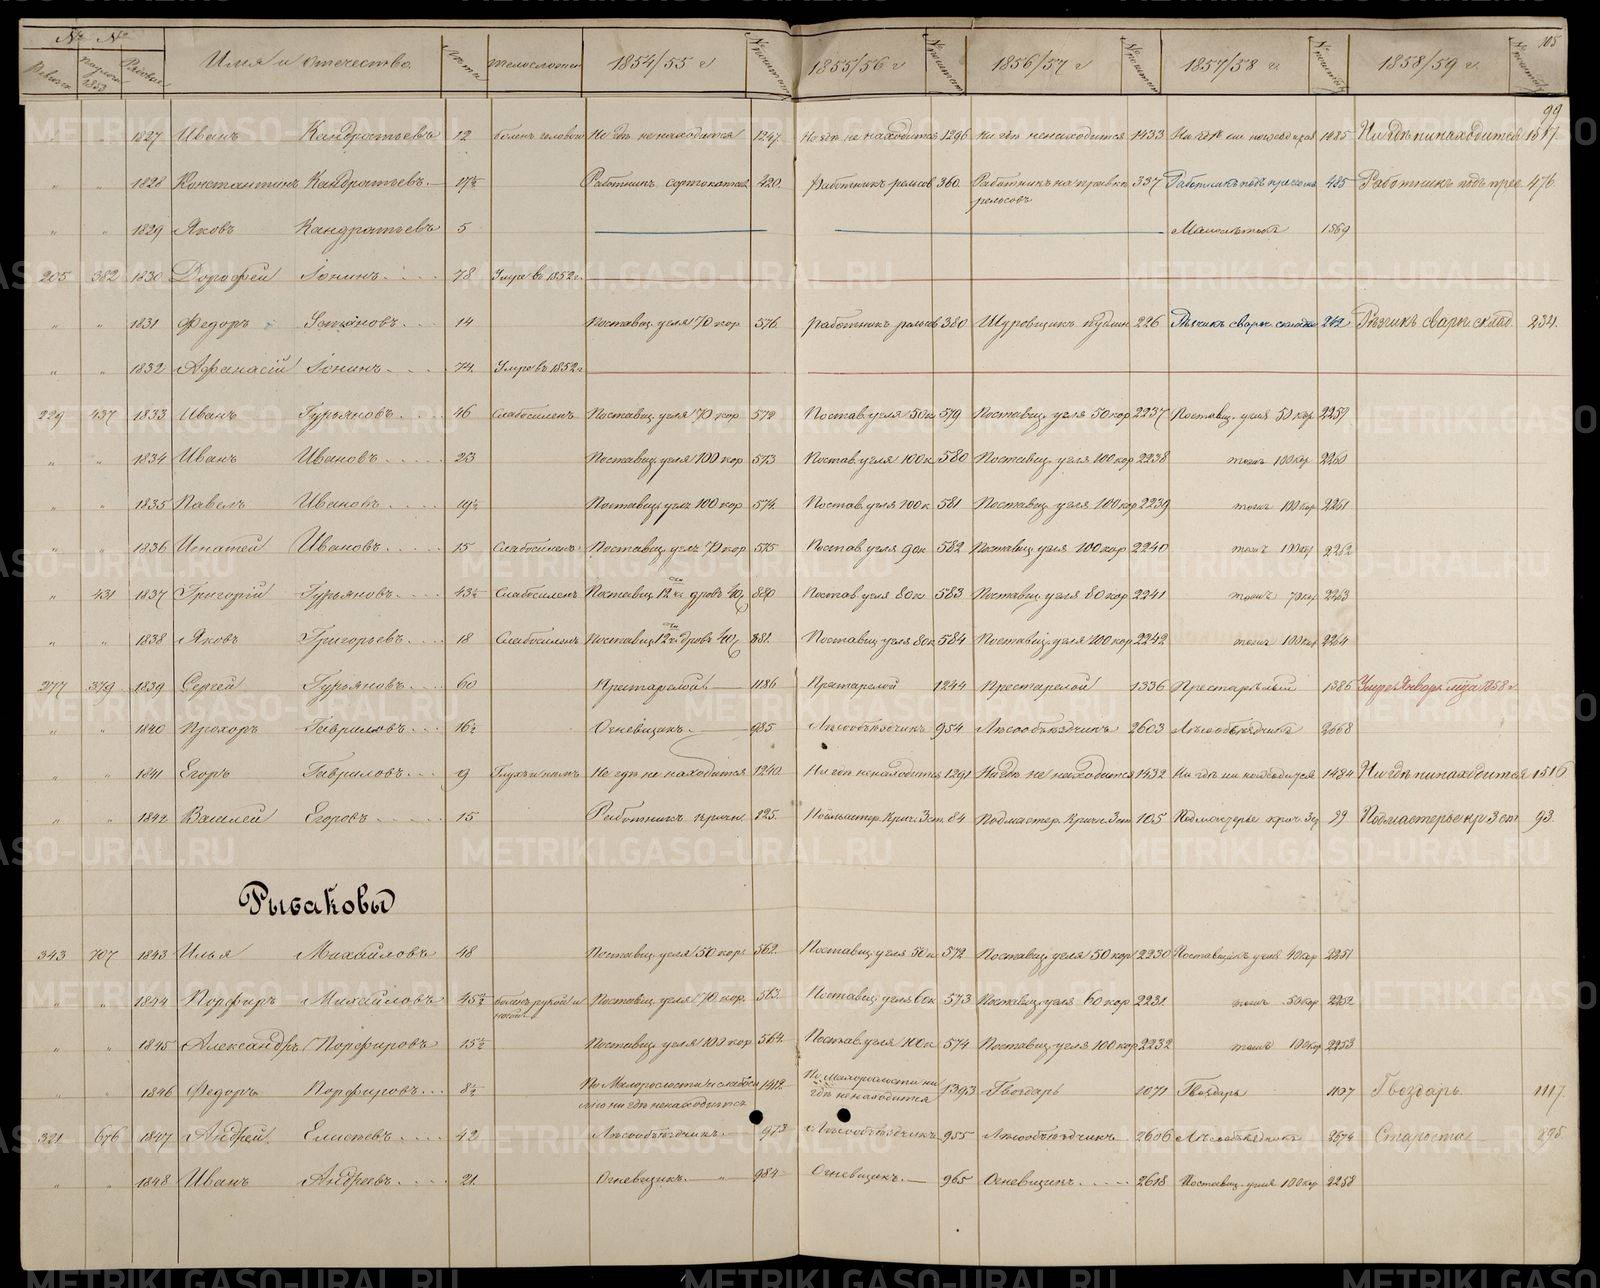 № №
Ревизск. Подвор. 1853 Рабочие Имя и отечество Лета телосложен 1854/55 г № 1855/56 г № 1856/57 г № 1857/58 г. № 1858/59 г. № 105
99
1827 Иванъ Кандратьевъ 12 боленъ головою Не гдѣ не находится 1247 Не гдѣ не находится 1296 Ни гдѣ ненаходится 1433 1485 Ни гдѣ ни находится 1517
" " 1828 Константинъ Кандратьевъ. 17½ Работникъ 420. Работникъ рельсов 360. Работникъ на правке рельсовъ 337 Работникъ подъ прессомъ 485 Работникъ подъ прес 476.
" " 1829 Яковъ Кандратьевъ 5 Малолѣтокъ 1569
205 382 1830 Дорофей Іонинъ 78 Умре въ 1852 г.
" " 1831 Федоръ 14 Поставщ. угля 70 кор 576. Работникъ рельсов 380 Шуровщикъ пудлин 226 Рѣзчикъ свароч. складки 242 Рѣзчикъ свароч. склад. 234.
" " 1832 Афанасій Іонинъ 74. Умре въ 1852 г
229 437 1833 Иванъ Гурьяновъ 46 Слабосиленъ Поставщ. угля 70 кор 572 Постав. угля 50 к 579 Поставщ. угля 50 кор 2237 Поставщ. угля 50 кор 2259
" " 1834 Иванъ Ивановъ 23 Поставщ. угля 100 кор 573 Постав. угля 100 к 580 Поставщ. угля 100 кор 2238 тоже 100 кор 2260
" " 1835 Павелъ Ивановъ 19½ Поставщ. угля 100 кор 574. Постав. угля 100 к 581 Поставщ. угля 100 кор 2239 тоже 100 кор 2261
" " 1836 Игнатей Ивановъ 15 Слабосиленъ Поставщ. угля 70 кор 575 Постав угля 90 к 582 Поставщ. угля 100 кор 2240 тоже 100 кор 2262
" 431 1837 Григорій Гурьяновъ 43½ Слабосиленъ Поставщ 12 дровъ 880 Постав угля 80 к 583 Поставщ. угля 80 кор 2241 тоже 70 кор 2263
" " 1838 Яковъ Григорьевъ 18 Слабосиленъ Поставщ 12 дровъ 881. Поставщ угля 80 к 584 Поставщ. угля 100 кор 2242 тоже 100 кор 2264
277 379 1839 Сергей Гурьяновъ 60 Престарелой 1186 Престарелой 1244 Престарелой 1336 Престарѣлый 1386 Умре Января мца 1858 г.
" " 1840 Прохоръ Гавриловъ 16½ Огневщикъ. 985 Лѣсообъѣздчикъ 954 Лѣсообъѣздчикъ 2603 Лѣсообъѣздчикъ 2668
" " 1841 Егоръ Гавриловъ 9 Глухъ и нѣмъ Не гдѣ не находится 1240. Ни гдѣ ненаходится 1291 Ни гдѣ не находится 1432 Ни гдѣ ни находится 1484 Ни гдѣ ни находится 1516
" " 1842 Василей Егоровъ 15 Работникъ кричн 125. Подмастер. Крич. 3 ст. 84 Подмастер. Кричн. 3 ст 105 Подмастерье крич 3 ст 99 Подмастерье кр 3 ст 93.
Рыбаковы
343 707 1843 Илья Михайловъ 48 Поставщ. угля 50 кор. 562. Поставщ угля 50 к 572 Поставщ угля 50 кор 2230 Поставщикъ угля 40 кор 2251
" " 1844 Порфиръ Михайловъ 45½ боленъ рукой и ногой Поставщ. угля 70 кор. 563. Поставщ угля 60 к 573 Поставщ. угля 60 кор 2231 тоже 50 кор 2252
" " 1845 Александръ Порфировъ 15½ Поставщ. угля 100 кор 564. Постав. угля 100 к 574 Поставщ угля 100 кор 2232 тоже 100 кор 2253
" " 1846 Федоръ Порфировъ 8½ По Малорослости и слабосилію ни гдѣ ненаходится 1412 По Малорослости ни гдѣ не находится 1393 Гвоздарь 1071 Гвоздарь 1107 Гвоздарь. 1117.
321 676 1847 Андрей Елисеевъ 42 Лѣсообъѣздчикъ. 973 Лѣсообъѣздчикъ 955 Лѣсообъѣздчикъ. 2606 Лѣсообъѣздчикъ 2674 Староста 895
" " 1848 Иванъ Андреевъ 21. Огневщикъ. 984 Огневщикъ. 965 Огневщикъ. 2618 Поставщ. угля 100 кор 2258
METRIKI.GASO-URAL.RU